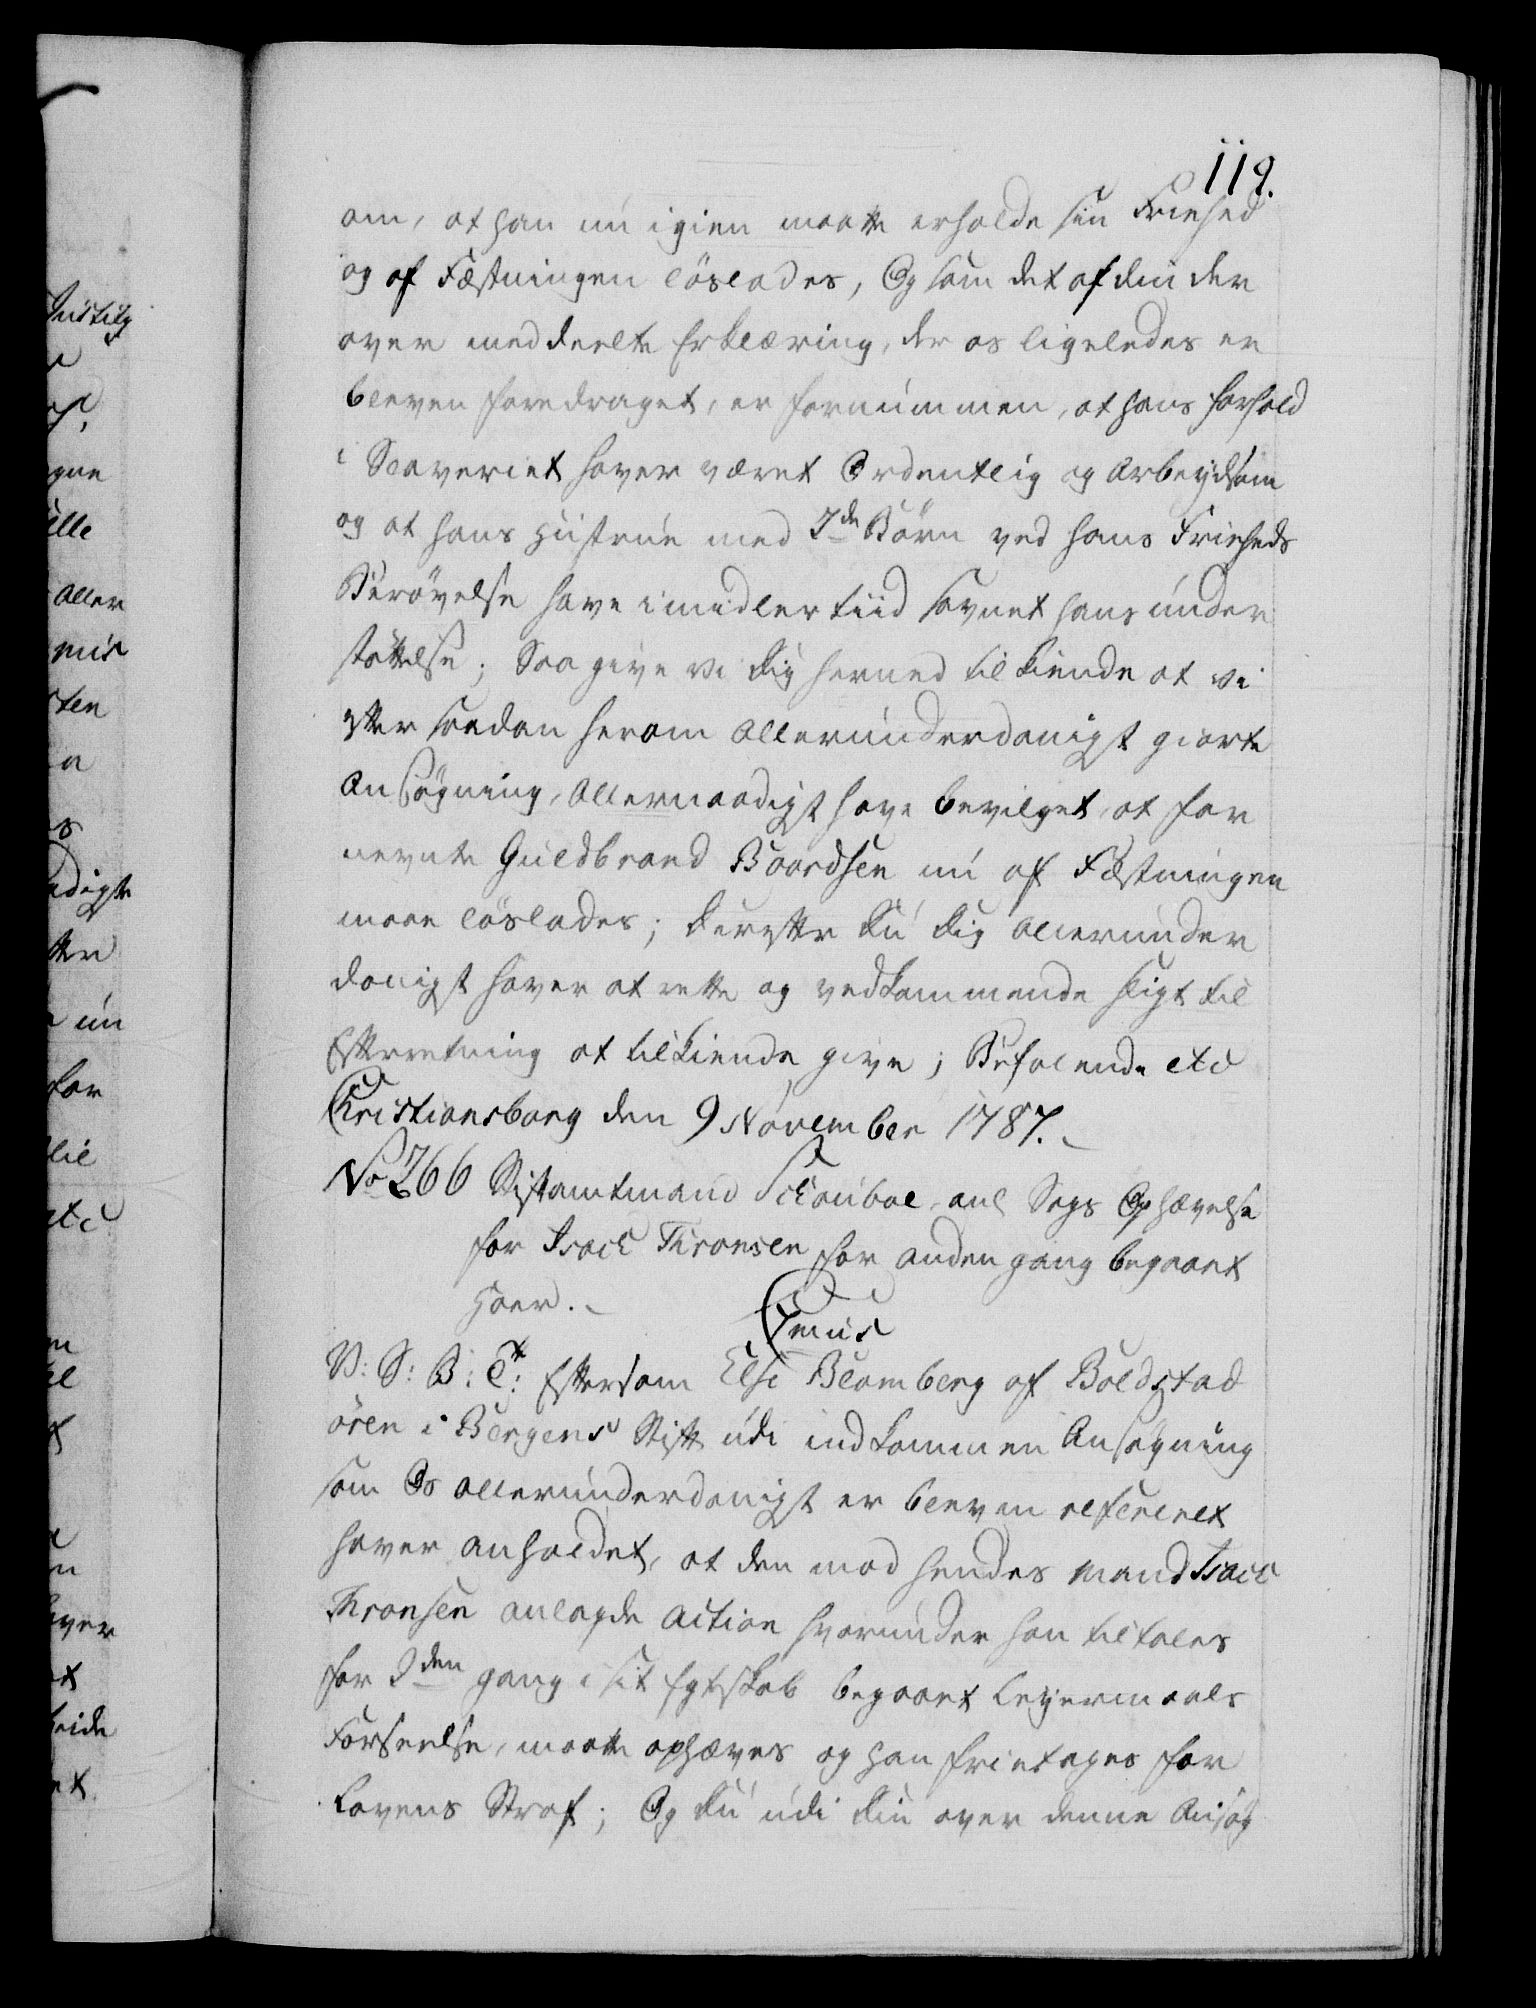 119.
om, at han nu igien maatte erholde sin Friehed
og af Fæstningen löslades, Og som det af din der
over meddeelte Erklæring, der os ligeledes er
bleven foredraget, er fornummen, at hans Forhold
i Slaveriet haver været Ordentlig og Arbeydsom
og at hans Hustrue med 7de Börn ved hans Friheds
Berövelse have imidlertiid savnet hans under
stöttelse; Saa give Vi dig hermed tilkiende at vi
efter saadan herom Allerunderdanigst giorte
Ansögning, Allernaadigst have bevilget, at for
nevnte Guldbrand Baardsen nu af Fæstningen
maae löslades; derefter du dig Allerunder
danigst haver at rette og vedkommende sligt til
Efterretning at tilkiende give; Befalende etc
Christiansborg den 9 November 1787.
No 266 Stiftamtmand Schoubœ, anl Sags Ophævelse
for Isach Thronsen for anden gang begaaet
Hoer.
Cmus
V: S: B: Ct: Eftersom Else Blomberg af Boldstad
ören i Bergens Stift udi indkommen Ansögning
som Os allerunderdanigst er bleven refereret
haver anholdet, at den mod hendes mand Isach
Thronsen anlagde Action hvorunder han tiltales
for 2den gang i sit Egteskab begaaet Leyermaals
Forseelse, maatte ophæves og han frietages for
Lovens Straf; Og du udi din over denne Ansög